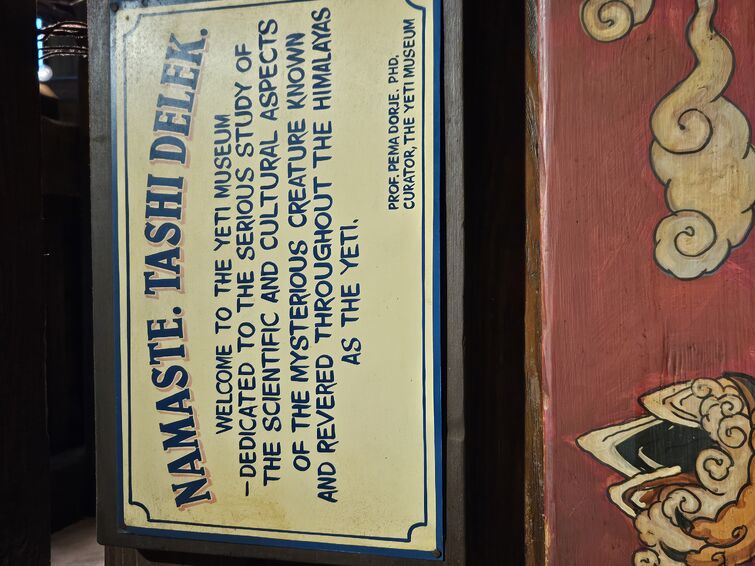 NAMASTE. TASHI DELEK.
WELCOME TO THE YETI MUSEUM
-DEDICATED TO THE SERIOUS STUDY OF
THE SCIENTIFIC AND CULTURAL ASPECTS
OF THE MYSTERIOUS CREATURE KNOWN
AND REVERED THROUGHOUT THE HIMALAYAS
AS THE YETI.
PROF. PEMA DORJE. PHD,
CURATOR, THE YETI MUSEUM